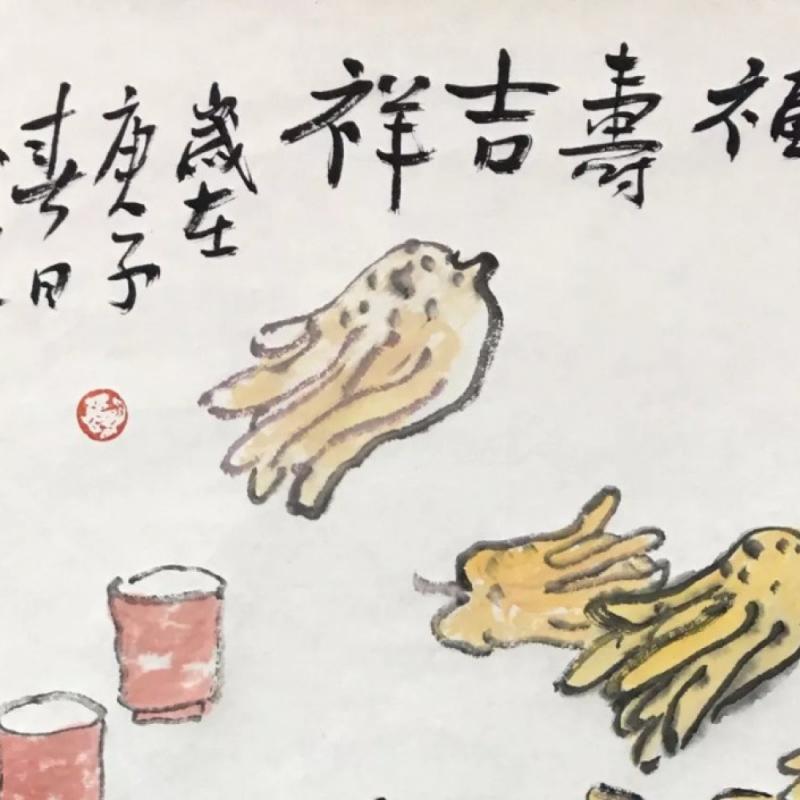 福壽吉祥
歲在
庚子
春日